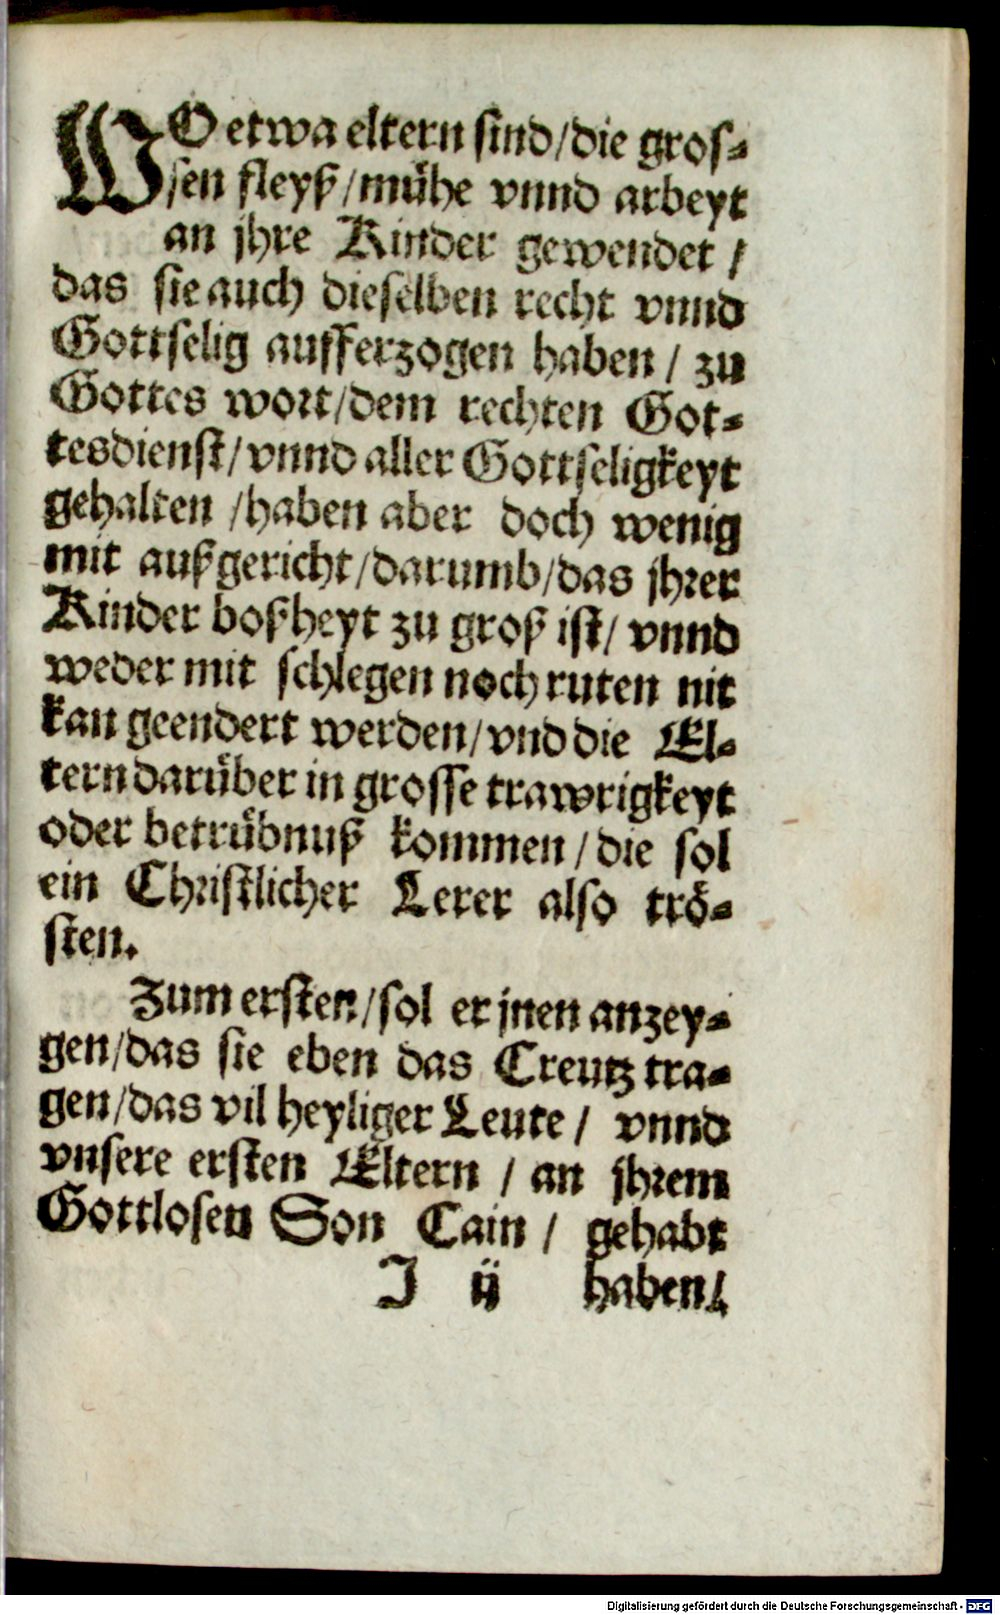 WO etwa eltern sind/die gros-
sen fleyß/mühe vnnd arbeyt
an jhre Kinder gewendet/
das sie auch dieselben recht vnnd
Gottselig aufferzogen haben/ zu
Gottes wort/dem rechten Got-
tesdienst/vnnd aller Gottseligkeyt
gehalten/haben aber doch wenig
mit außgericht/darumb/das jhrer
Kinder boßheyt zu groß ist/ vnnd
weder mit schlegen noch ruten nit
kan geendert werden/vnd die El-
tern darüber in grosse trawrigkeyt
oder betrübnuß kommen/die sol
ein Christlicher Lerer also trö-
sten.
Zum ersten/sol er jnen anzey-
gen/das sie eben das Creutz tra-
gen/das vil heyliger Leute/ vnnd
vnsere ersten Eltern/ an jhrem
Gottlosen Son Cain/ gehabt
J ij haben/
Digitalisierung gefördert durch die Deutsche Forschungsgemeinschaft - DFG